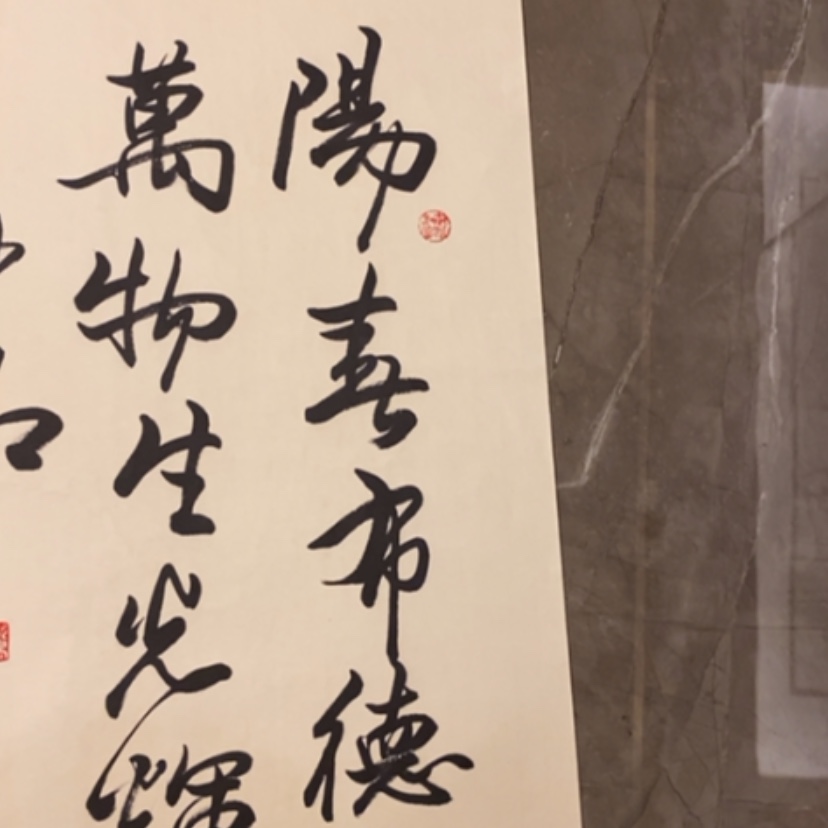 陽春布德
萬物生光輝